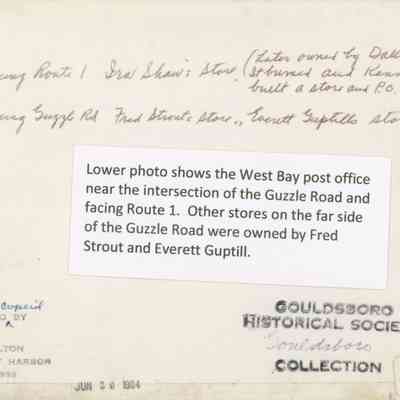 ing Route 1 Ira Shaw's Store (Later owned by Dall
It burned and Kenn
built a store and P.O.
ing Guzzle Rd Fred Strout's Store, Everett Guptills sto
Lower photo shows the West Bay post office
near the intersection of the Guzzle Road and
facing Route 1. Other stores on the far side
of the Guzzle Road were owned by Fred
Strout and Everett Guptill.
BY
LTON
HARBOR
GOULDSBORO
HISTORICAL SOCIE
Gouldsboro
COLLECTION
JUN 1984